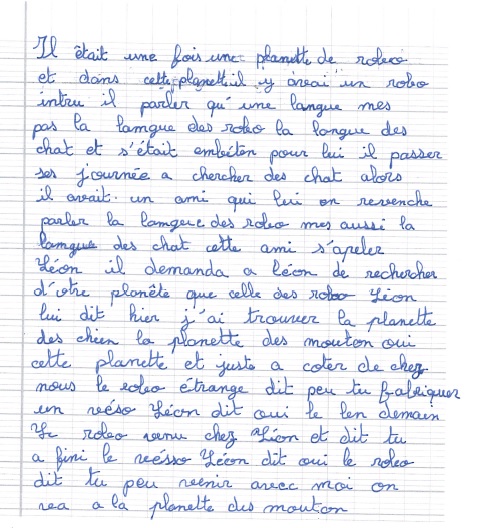 Il était une fois une planette de roboo
et dans cette planett il y avai un robo
intru il parler qu'une langue mes
pas la lamgue des robo la langue des
chat et s'était embéton pour lui il passer
ses journée a chercher des chat alors
il avait un ami qui lui en revenche
parler la langeue des roboo mes aussi la
lamgue des chat cette ami s'apeler
Léon il demanda a léon de rechercher
d'otre planète que celle des robo Léon
lui dit hier j'ai trouver la planette
des chien la planette des mouton oui
cette planette et juste a coter de chez
nous le robo étrange dit peu tu fabriquer
un réso Léon dit oui le len demain
Le roboo venu chez Léon et dit tu
a fini le résso Léon dit oui le roboo
dit tu peu venir avec moi on
vea a la planette des mouton